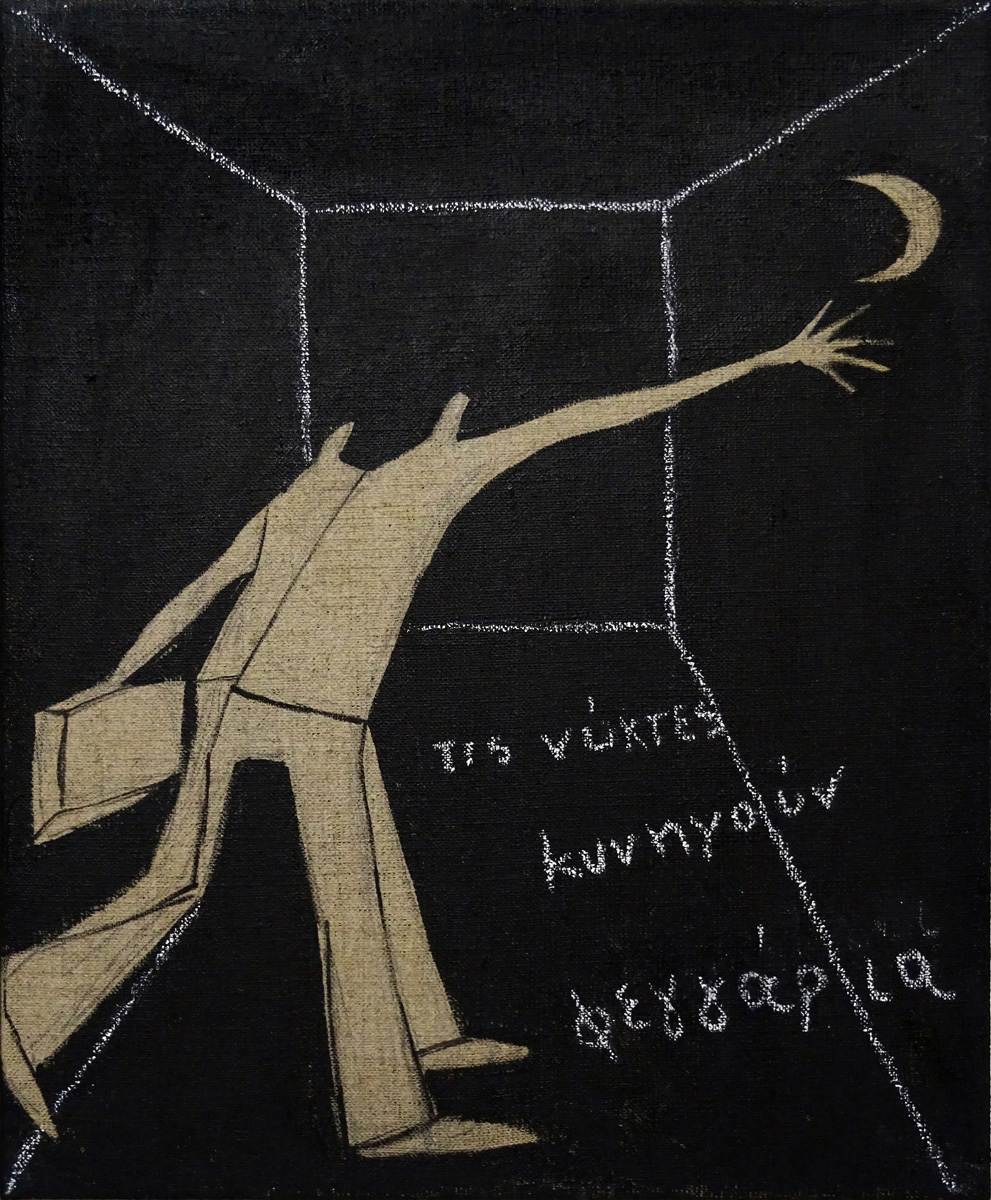 τις νύχτες
κυνηγούν
φεγγάρια